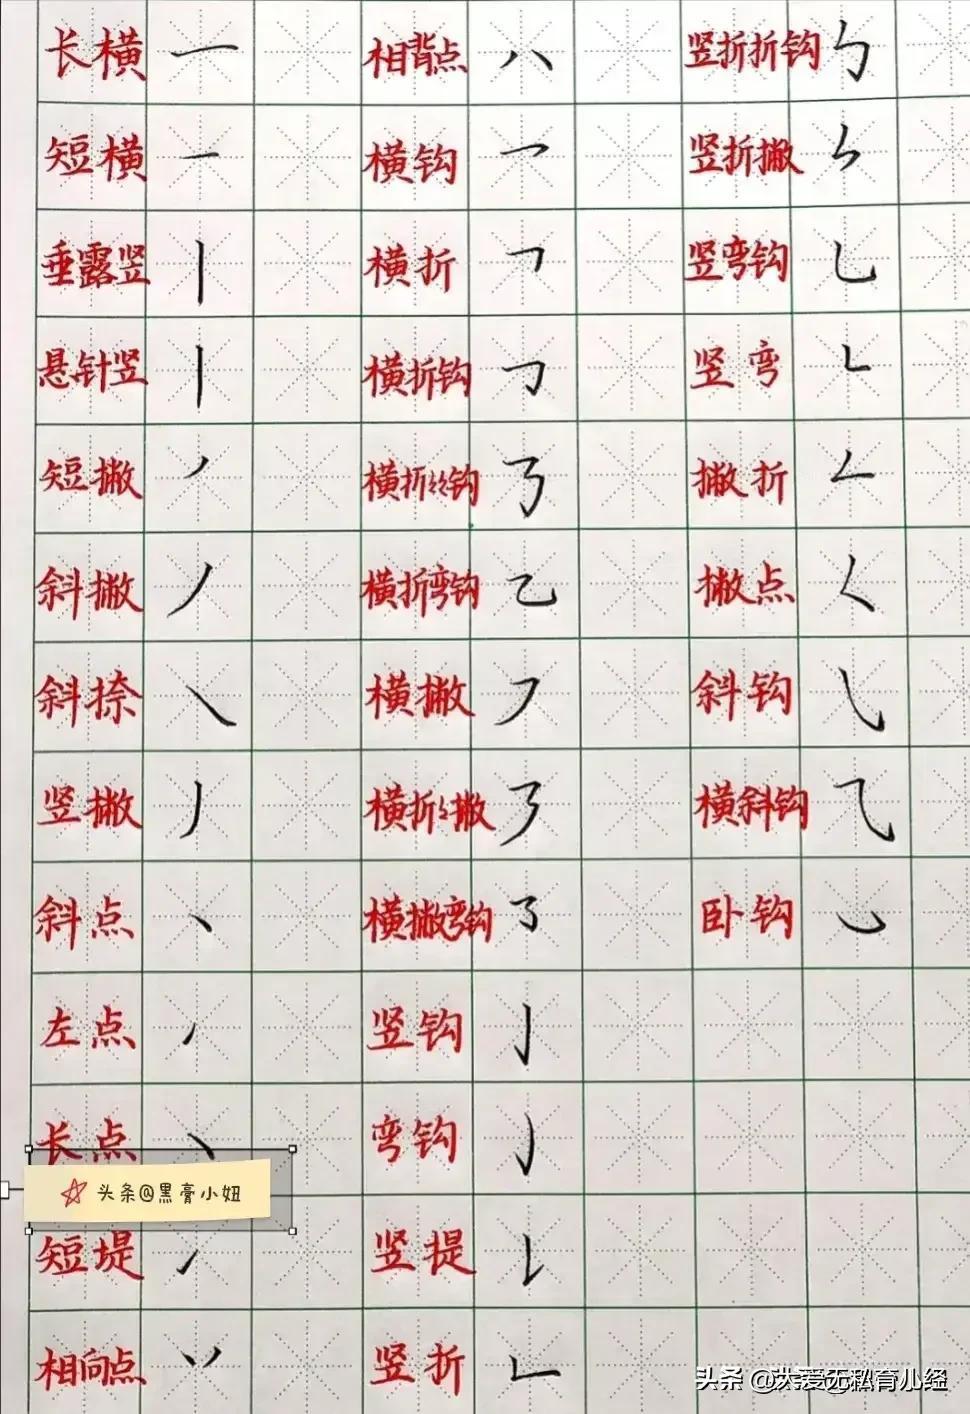 长横
短横
垂露竖
悬针竖
短撇
斜撇
斜捺
竖撇
斜点
左点
长点
头条@黑膏小妞
短堤
相向点
相背点
横钩
横折
横折钩
横折々々钩
横折弯钩
横撇
横折々撇
横撇弯钩
竖钩
弯钩
竖提
竖折
竖折折钩
竖折撇
竖弯钩
竖弯
撇折
撇点
斜钩
横斜钩
卧钩
头条 @大爱无私育儿经